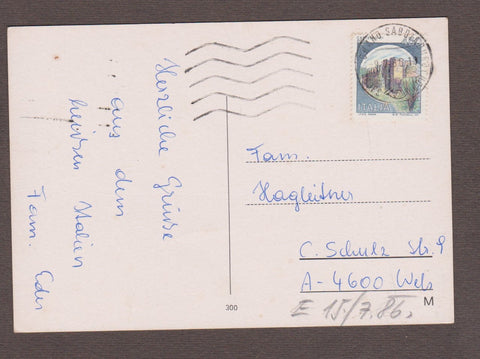 Herzliche Grüße
aus dem
heißen Italien
Fam. Eder
ITALIA
Fam.
Hagleitner
C. Schulz Str. 9
A-4600 Wels
E 15/7.86,
300
M